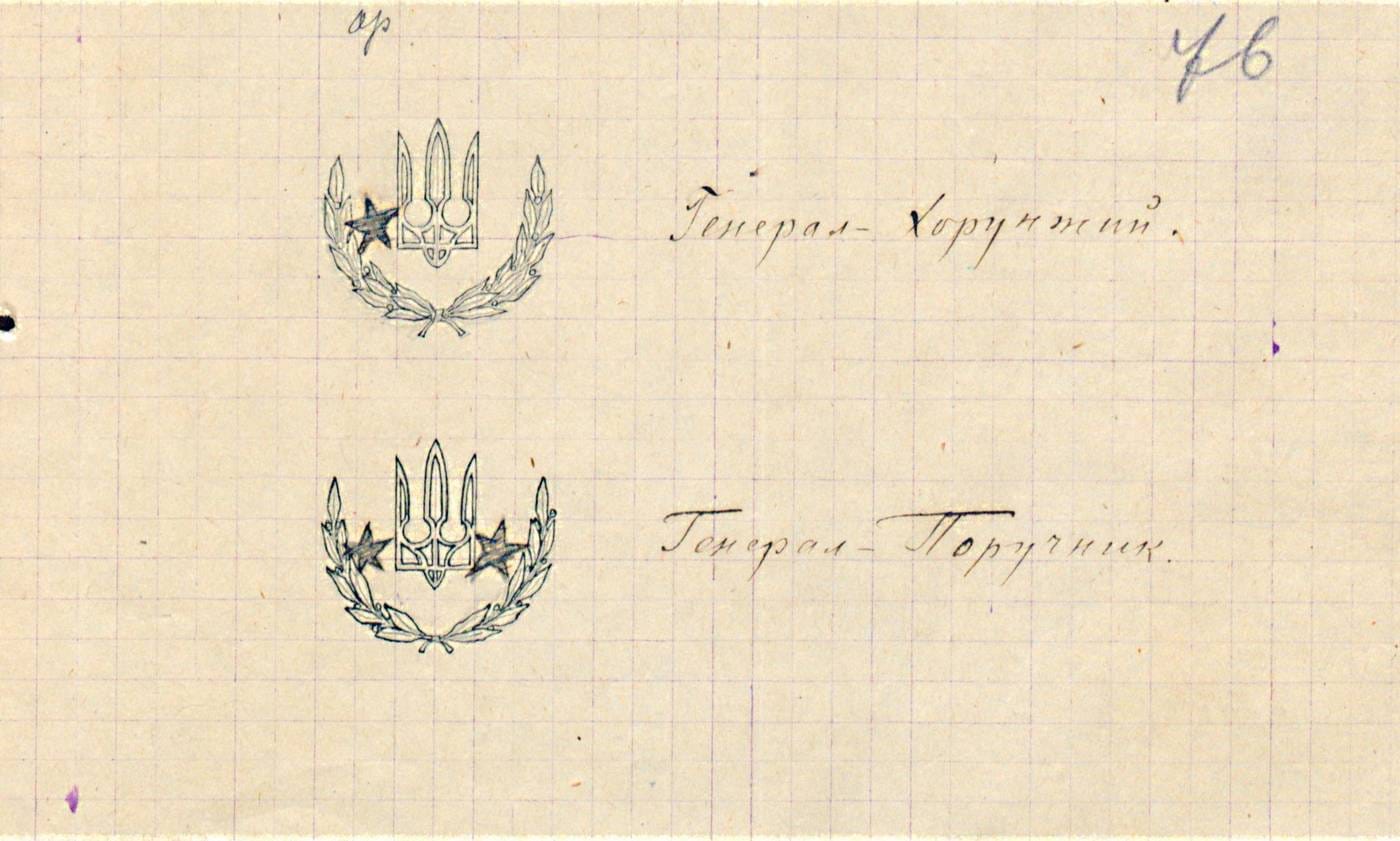 ор
76
Генерал- Хорунжий.
Генерал- Поручник.